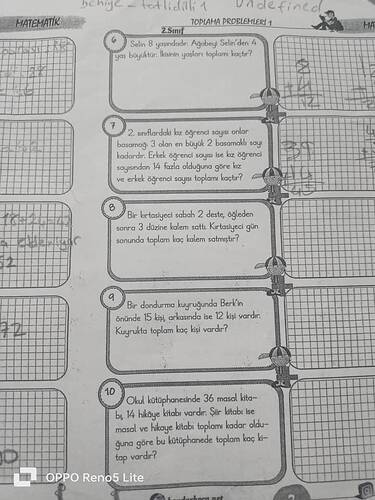 MATEMATİK
TOPLAMA PROBLEMLERİ 1
2.Sınıf
MA
6
Selin 8 yaşındadır. Ağabeyi Selin'den 4
yaş büyüktür. İkisinin yaşları toplamı kaçtır?
8
12
7
2. sınıflardaki kız öğrenci sayısı onlar
basamağı 3 olan en büyük 2 basamaklı sayı
kadardır. Erkek öğrenci sayısı ise kız öğrenci
sayısından 14 fazla olduğuna göre kız
ve erkek öğrenci sayısı toplamı kaçtır?
39
8
Bir kırtasiyeci sabah 2 deste, öğleden
sonra 3 düzine kalem sattı. Kırtasiyeci gün
sonunda toplam kaç kalem satmıştır?
9
Bir dondurma kuyruğunda Berk'in
önünde 15 kişi, arkasında ise 12 kişi vardır.
Kuyrukta toplam kaç kişi vardır?
10
Okul kütüphanesinde 36 masal kita-
bı, 14 hikâye kitabı vardır. Şiir kitabı ise
masal ve hikaye kitabı toplamı kadar oldu-
ğuna göre bu kütüphanede toplam kaç ki-
tap vardır?
OPPO Reno5 Lite